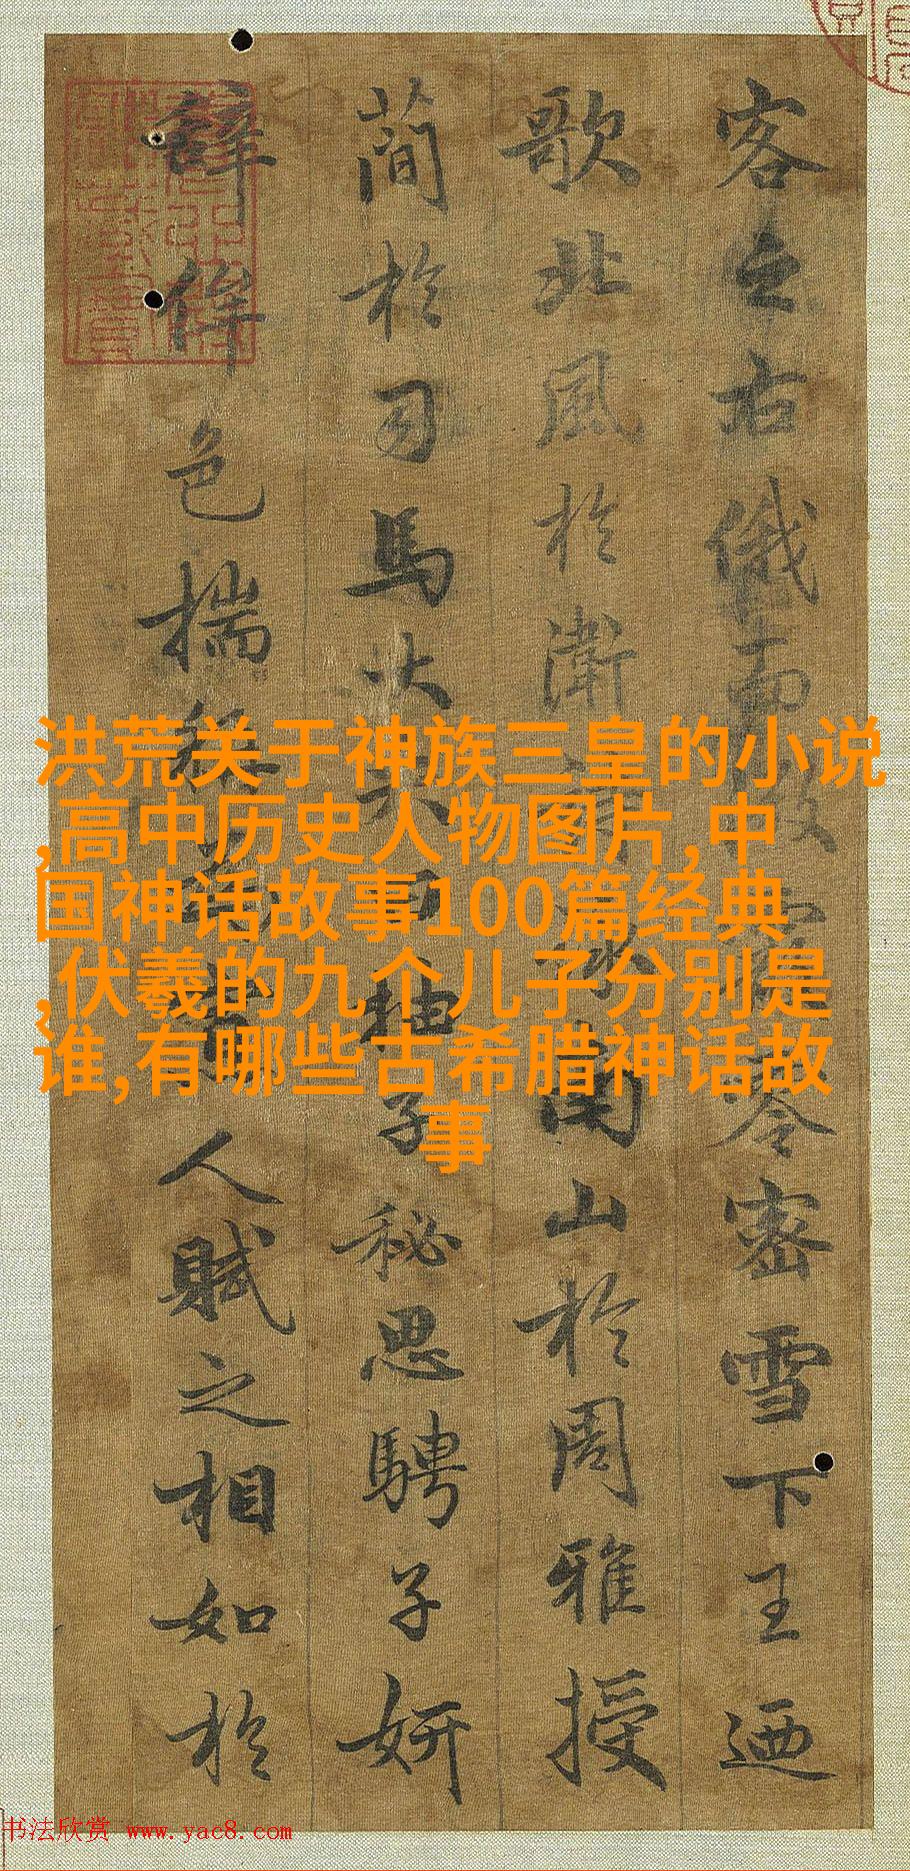 洪荒关于神族三皇的小说
,高中历史人物图片,中
国神话故事100篇经典
,伏羲的九个儿子分别是
谁,有哪些古希腊神话故
事
客之右俄而零密雪下王迺
歌北風於衛詠南山於周雅授
簡於司馬大夫曰抽子秘思騁子妍
辭侔色揣稱人賦之相如於
书法欣赏 www.yac8.com